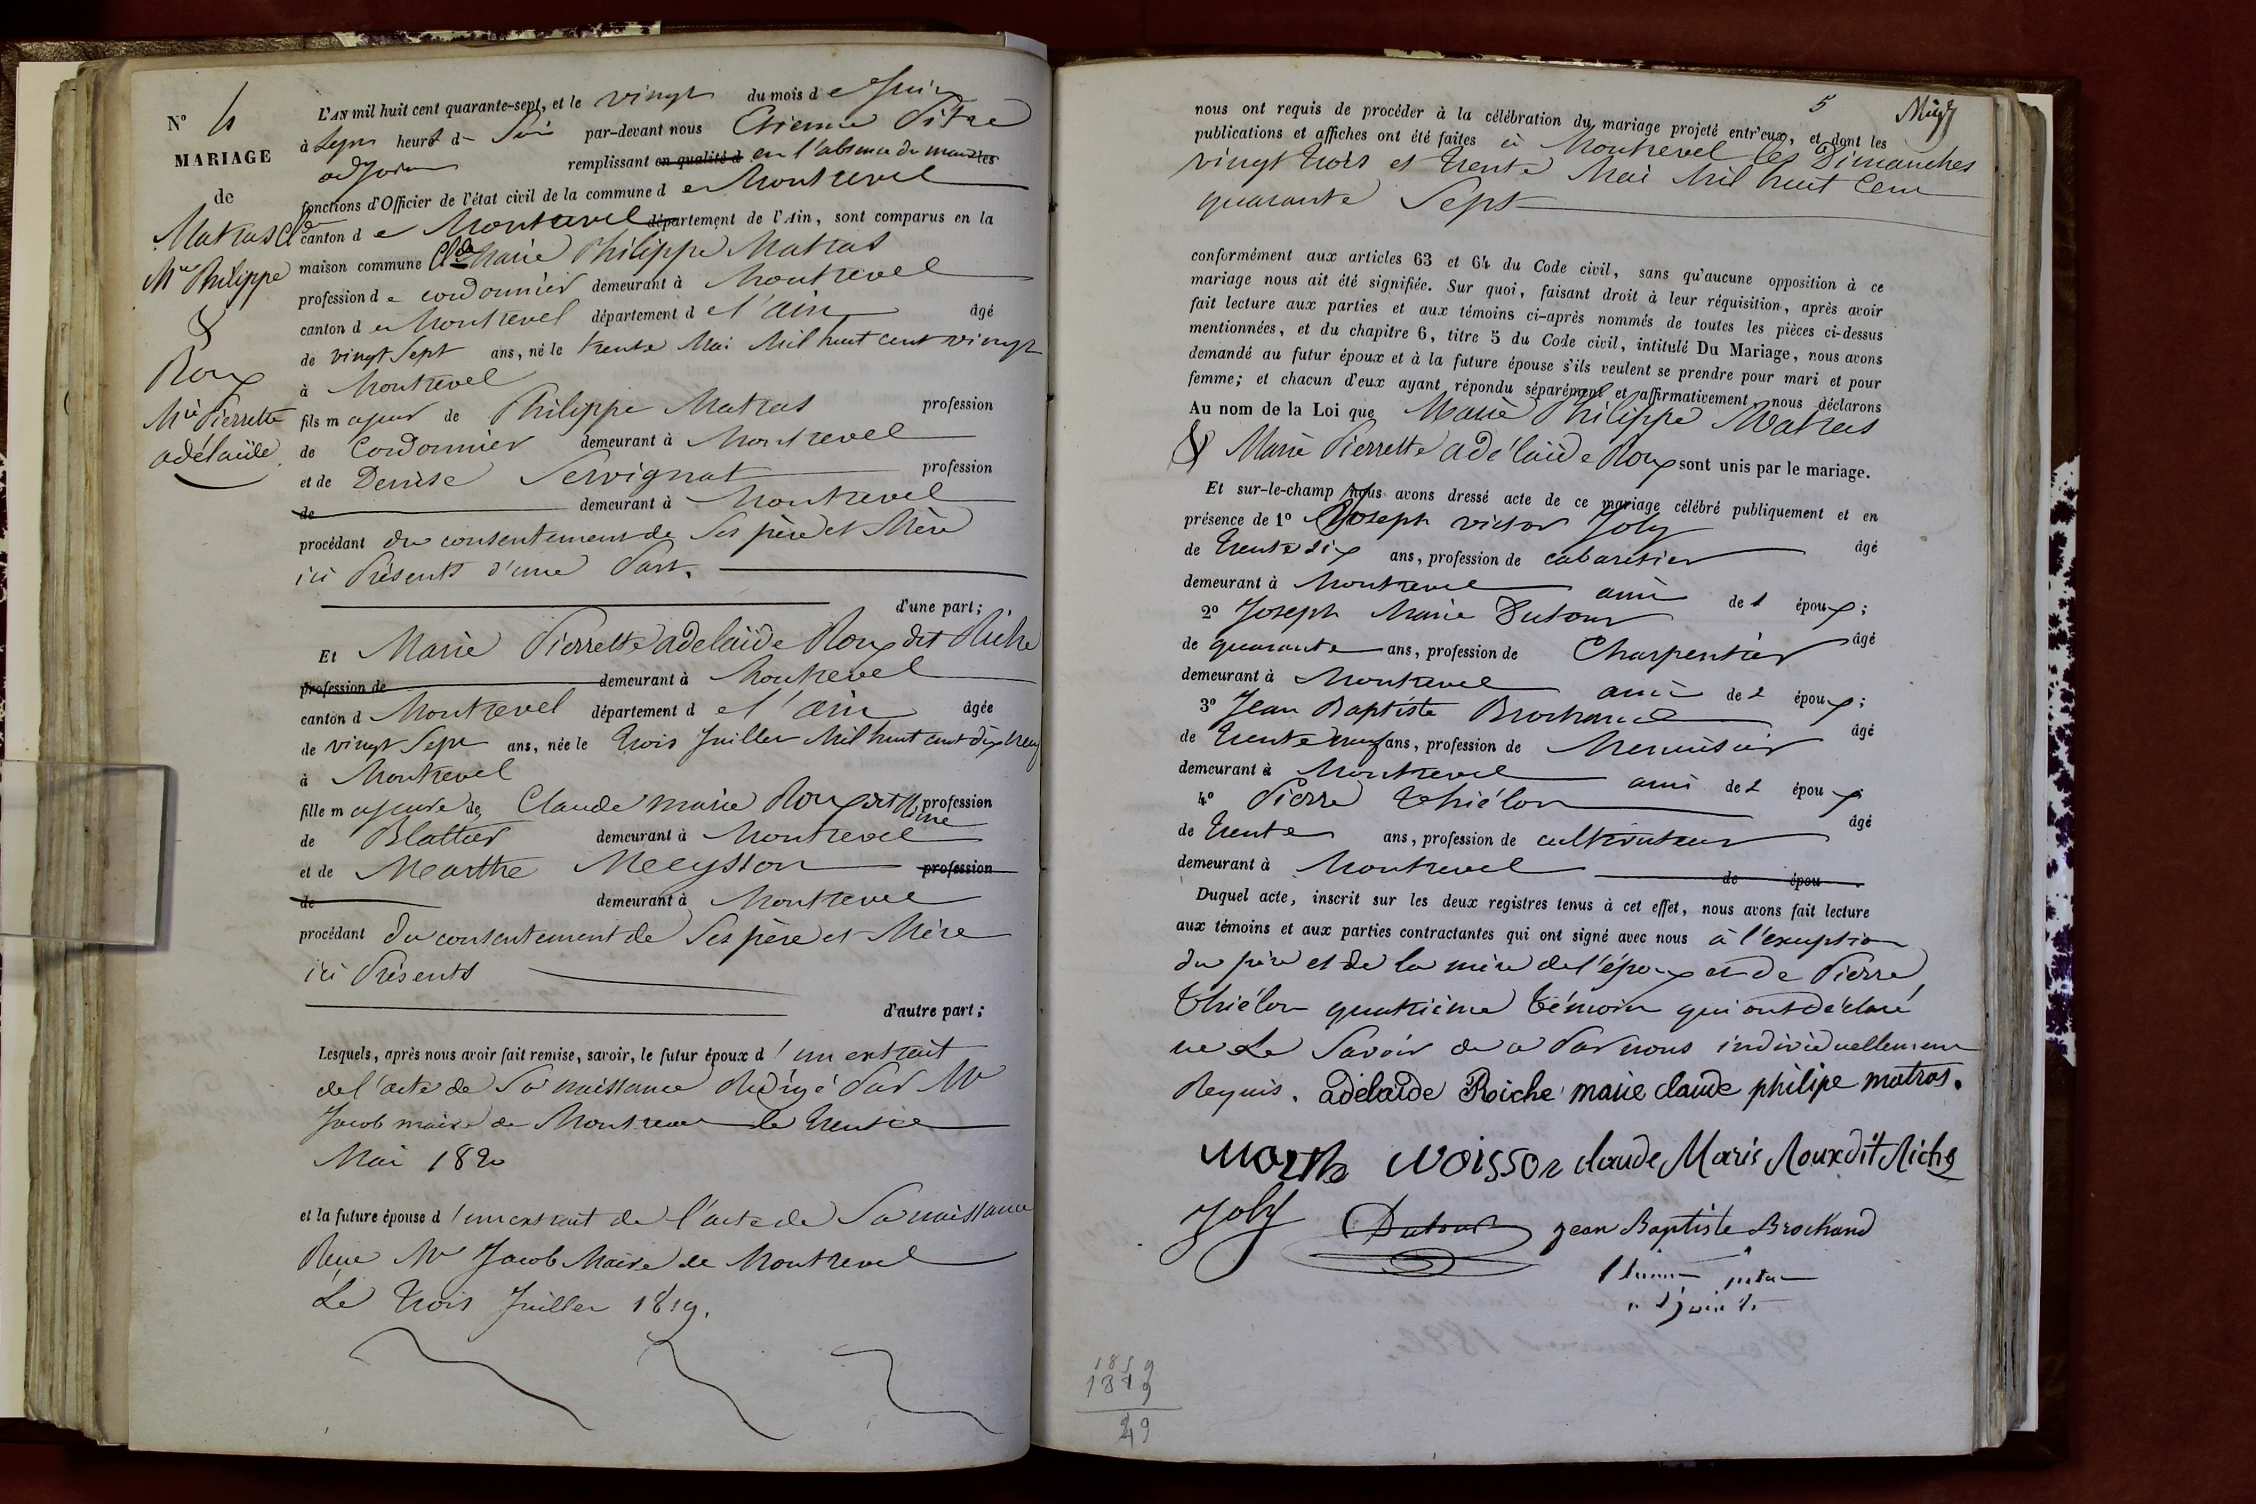 N° 4
MARIAGE
de
Matras Cl de
M ie Philippe
&
Roux
M ie Pierrette
adélaïde
L'AN mil huit cent quarante-sept, et le vingt du mois de Juin
à Sept heures d Soir par-devant nous Etienne Pitre
adjoint remplissant en qualité d en l'absence du maire les
fonctions d'Officier de l'état civil de la commune de Montrevel
canton de Montrevel département de l'Ain, sont comparus en la
maison commune Cl de Marie Philippe Matras
profession de cordonnier demeurant à Montrevel
canton de Montrevel département de l'ain âgé
de vingt Sept ans, né le trente Mai Mil huit cent vingt
à Montrevel
fils majeur de Philippe Matras profession
de Cordonnier demeurant à Montrevel
et de Denise Servignat profession
de demeurant à Montrevel
procédant du consentement de Ses père et Mère
ici Présents d'une Part.
d'une part;
Et Marie Pierrette adelaïde Roux dit Riche
profession de demeurant à Montrevel
canton d Montrevel département de l'ain âgée
de vingt Sept ans, née le trois Juillet Mil huit cent dix neuf
à Montrevel
fille majeure de Claude marie Roux dit Riche profession
de Blattier demeurant à Montrevel
et de Marthe Meysson profession
de demeurant à Montrevel
procédant du consentement de Ses père et Mère
ici Présents
d'autre part;
Lesquels, après nous avoir fait remise, savoir, le futur époux d'un extrait
de l'acte de Sa naissance Rédigé Par Mr
Jacob maire de Montrevel le trente
Mai 1820
et la future épouse d'un extrait de l'acte de Sa naissance
Reçue Mr Jacob Maire de Montrevel
Le trois Juillet 1819.
5
nous ont requis de procéder à la célébration du mariage projeté entr'eux, et dont les
publications et affiches ont été faites à Montrevel les Dimanches
vingt trois et trente Mai Mil huit Cent
quarante Sept
conformément aux articles 63 et 64 du Code civil, sans qu'aucune opposition à ce
mariage nous ait été signifiée. Sur quoi, faisant droit à leur réquisition, après avoir
fait lecture aux parties et aux témoins ci-après nommés de toutes les pièces ci-dessus
mentionnées, et du chapitre 6, titre 5 du Code civil, intitulé Du Mariage, nous avons
demandé au futur époux et à la future épouse s'ils veulent se prendre pour mari et pour
femme; et chacun d'eux ayant répondu séparément et affirmativement, nous déclarons
Au nom de la Loi que Marie Philippe Matras
& Marie Pierrette adélaïde Roux sont unis par le mariage.
Et sur-le-champ nous avons dressé acte de ce mariage célébré publiquement et en
présence de 1° Joseph victor Joly âgé
de trente six ans, profession de cabaretier
demeurant à Montrevel ami de l époux;
2° Joseph Marie Dutour âgé
de quarante ans, profession de Charpentier
demeurant à Montrevel ami de l époux;
3° Jean Baptiste Brochand âgé
de trente neuf ans, profession de Menuisier
demeurant à Montrevel ami de l époux
4° Pierre Thiélon âgé
de trente ans, profession de cultivateur
demeurant à Montrevel de épou
Duquel acte, inscrit sur les deux registres tenus à cet effet, nous avons fait lecture
aux témoins et aux parties contractantes qui ont signé avec nous à l'exception
du père et de la mère de l'époux et de Pierre
Thiélon quatrième témoin qui ont déclaré
ne Le Savoir de ce Par nous individuellement
Requis. adelaïde Roiche marie claude philipe matras.
Marthe Moisson claude Marie Roux dit Riche
Joly Dutour jean Baptiste Brochand
Etienne pitre
adjoint
1859
1819
29